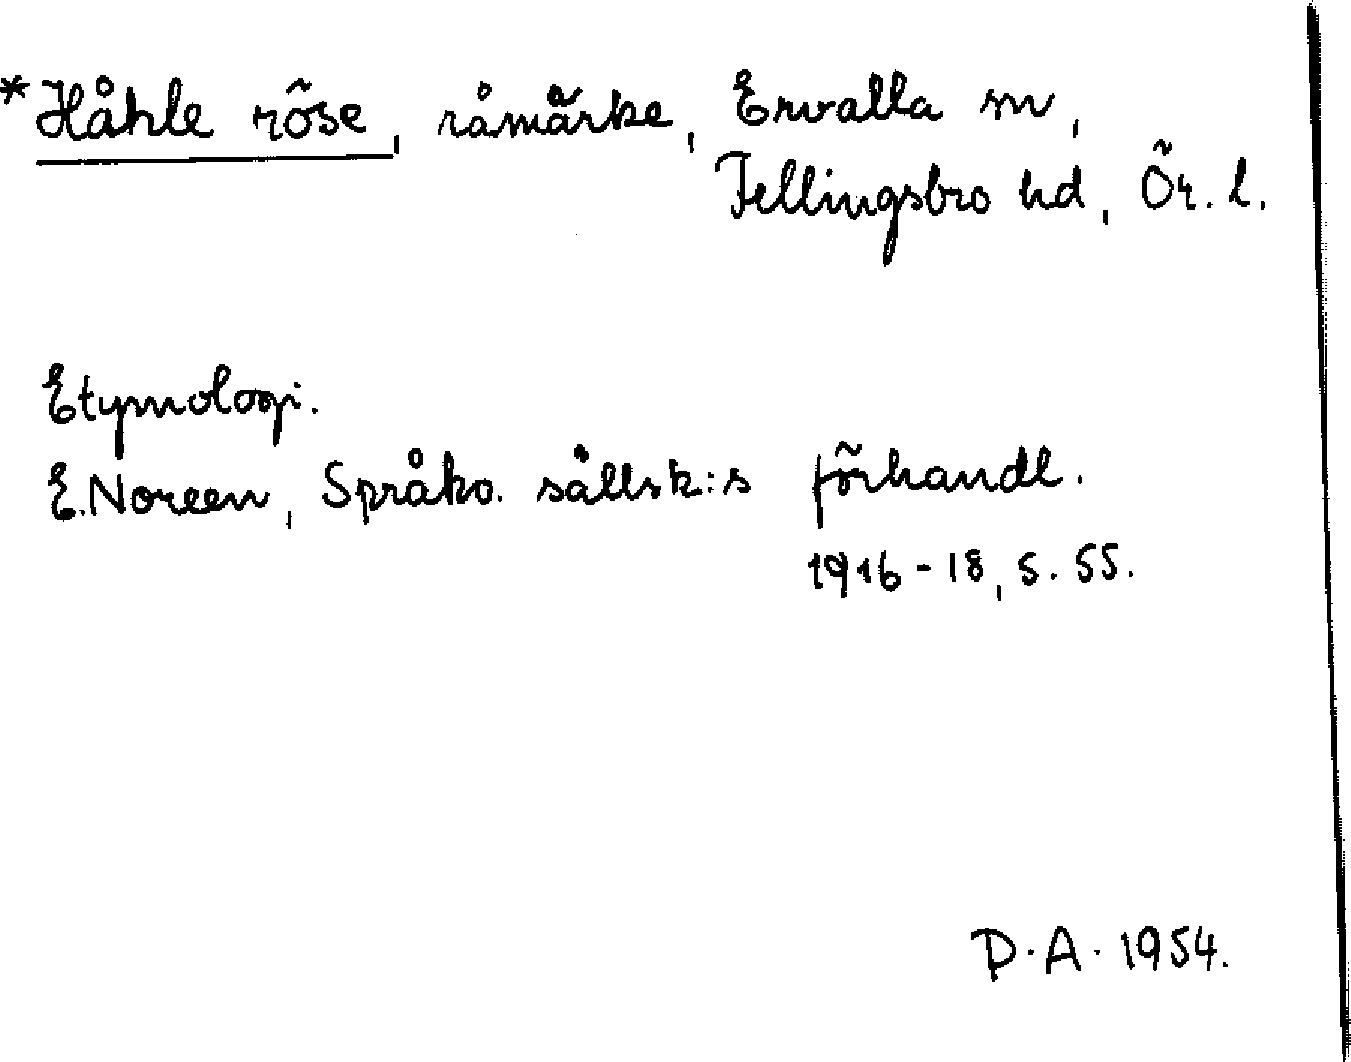 *Håhle röse, råmärke, Ervalla sn,
Fellingsbro hd, Ör. l.
Etymologi.
E. Noreen, Språkv. sällsk:s förhandl.
1916-18, s. 55.
D.A. 1954.